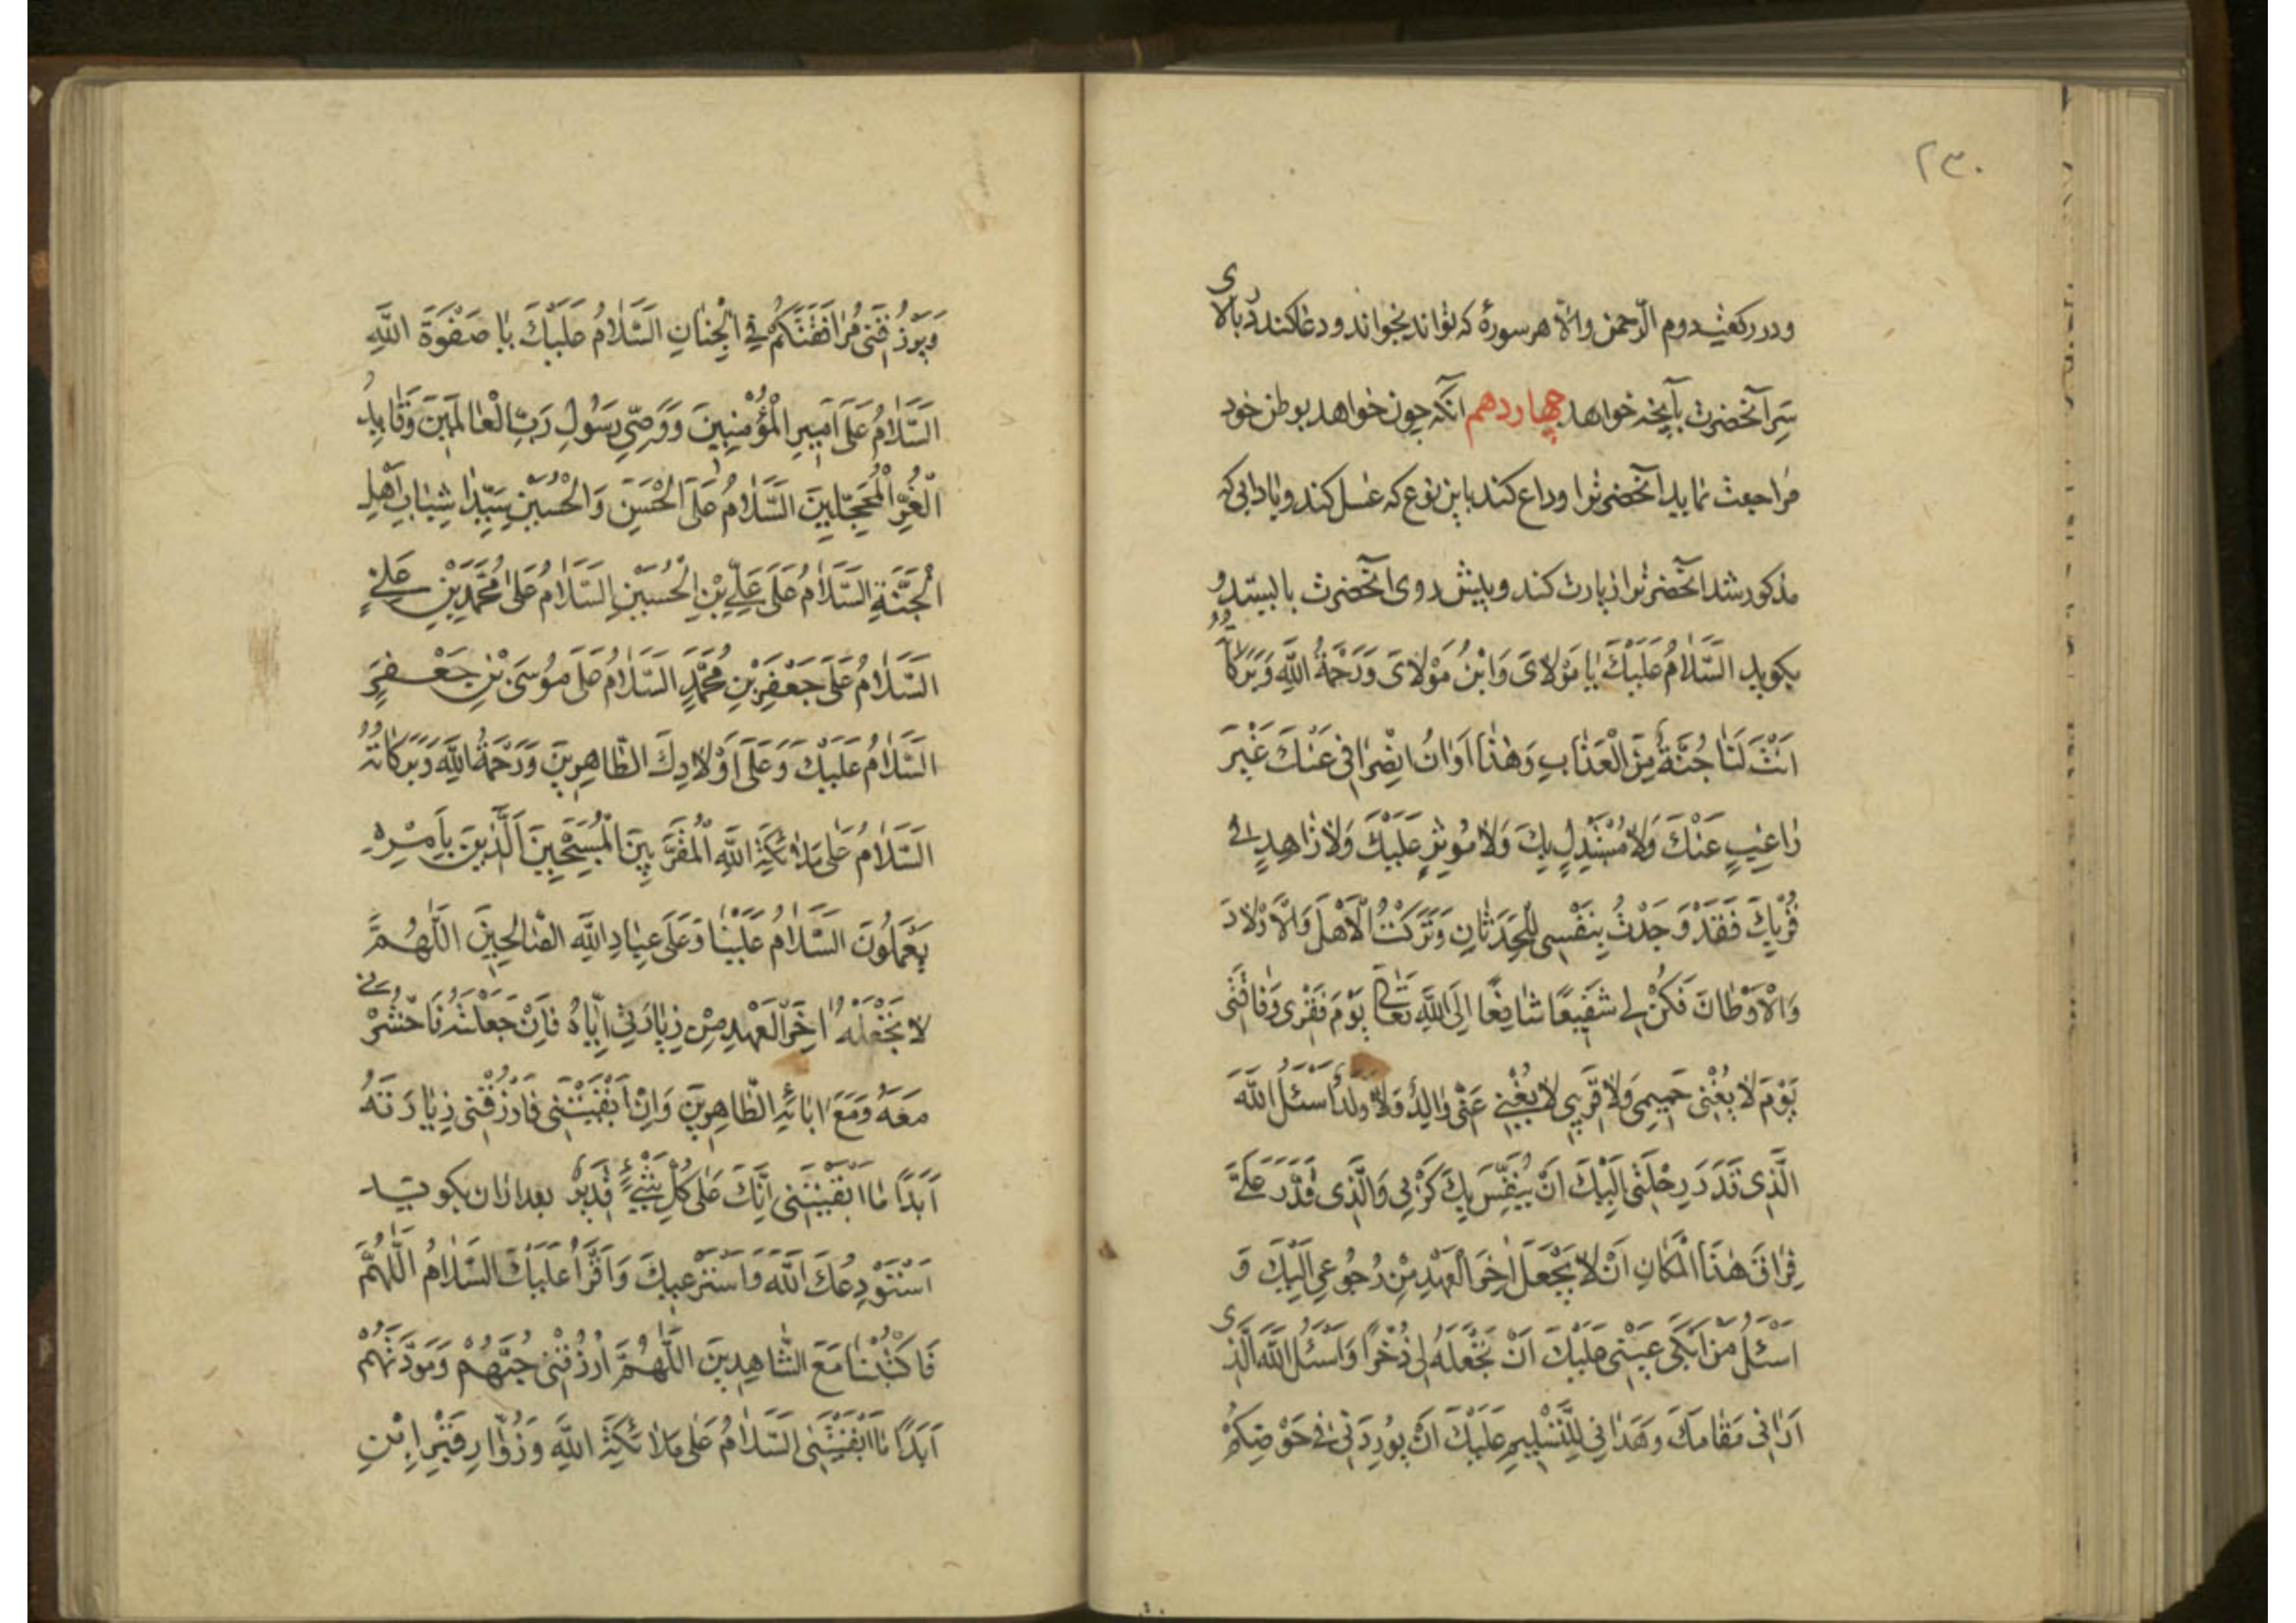 ۲۳۰
و در رکعت دوم الرّحمن و الّا هر سورهٔ که تواند بخواند و دعا کند در بالای
سر آنحضرت بآنچه خواهد چهاردهم آنکه چون خواهد بوطن خود
مراجعت نماید آنحضرترا وداع کند باین نوع که غسل کند و بادابی که
مذکور شد آنحضرترا زیارت کند و پیش روی آنحضرت بایستد و
بکوید السَّلٰامُ عَلَیْكَ یٰا مَوْلٰایَ وَابْنُ مَوْلٰایَ وَرَحْمَةُ اللّٰهِ وَبَرَکٰاتُهُ
اَنْتَ لَنٰا جُنَّةٌ مِنَ الْعَذٰابِ وَهٰذٰا اَوٰانُ اِنْصِرٰافی عَنْكَ غَیْرَ
رٰاغِبٍ عَنْكَ وَلٰا مُسْتَبْدِلٍ بِكَ وَلٰا مُوثِرٍ عَلَیْكَ وَلٰا زٰاهِدٍ فی
قُرْبِكَ فَقَدْ وَجَدْتُ بِنَفْسی لِلْحَدَثٰانِ وَتَرَکْتُ الْاَهْلَ وَالْاَوْلٰادَ
وَالْاَوْطٰانَ فَکُنْ لی شَفیعًا شٰافِعًا اِلَی اللّٰهِ تَعٰالی یَوْمَ فَقْری وَفٰاقَتی
یَوْمَ لٰا یُغْنی حَمیمی وَلٰا قَریبی لٰا یُغْنی عَنّی وٰالِدٌ وَلٰا وَلَدٌ اَسْئَلُ اللّٰهَ
الَّذی قَدَّرَ رِحْلَتی اِلَیْكَ اَنْ یُنَفِّسَ بِكَ کَرْبی وَالَّذی قَدَّرَ عَلَیَّ
فِرٰاقَ هٰذَا الْمَکٰانِ اَنْ لٰا یَجْعَلَ اٰخِرَ الْعَهْدِ مِنْ رُجُوعی اِلَیْكَ وَ
اَسْئَلُ مَنْ اَبْکٰی عَیْنی عَلَیْكَ اَنْ یَجْعَلَهُ لی ذُخْرًا وَاَسْئَلُ اللّٰهَ الَّذی
اَرٰانی مَقٰامَكَ وَهَدٰانی لِلتَّسْلیمِ عَلَیْكَ اَنْ یُورِدَنی فی حَوْضِکُمْ
وَیَرْزُقَنی مُرٰافَقَتَکُمْ فِی الْجِنٰانِ السَّلٰامُ عَلَیْكَ یٰا صَفْوَةَ اللّٰهِ
السَّلٰامُ عَلٰی اَمیرِ الْمُؤْمِنینَ وَوَصِیِّ رَسُولِ رَبِّ الْعٰالَمینَ وَقٰایِدِ
الْغُرِّ الْمُحَجَّلینَ السَّلٰامُ عَلَی الْحَسَنِ وَالْحُسَیْنِ سَیِّدا شِبٰابِ اَهْلِ
الْجَنَّةِ السَّلٰامُ عَلٰی عَلِیِّ بْنِ الْحُسَیْنِ السَّلٰامُ عَلٰی مُحَمَّدِ بْنِ عَلیٍ
السَّلٰامُ عَلٰی جَعْفَرِ بْنِ مُحَمَّدٍ السَّلٰامُ عَلٰی مُوسَی بْنِ جَعْفَرٍ
السَّلٰامُ عَلَیْكَ وَعَلٰی اَوْلٰادِكَ الطّٰاهِرینَ وَرَحْمَةُ اللّٰهِ وَبَرَکٰاتُهُ
السَّلٰامُ عَلٰی مَلٰائِکَةِ اللّٰهِ الْمُقَرَّبینَ الْمُسَبِّحینَ الَّذینَ بِاَمْرِهِ
یَعْمَلُونَ السَّلٰامُ عَلَیْنٰا وَعَلٰی عِبٰادِ اللّٰهِ الصّٰالِحینَ اللّٰهُمَّ
لٰا تَجْعَلْهُ اٰخِرَ الْعَهْدِ مِنْ زِیٰارَتی اِیّٰاهُ فَاِنْ جَعَلْتَهُ فَاحْشُرْنی
مَعَهُ وَمَعَ اٰبٰائِهِ الطّٰاهِرینَ وَاِنْ اَبْقَیْتَنی فَارْزُقْنی زِیٰارَتَهُ
اَبَدًا مٰا اَبْقَیْتَنی اِنَّكَ عَلٰی کُلِّ شَیْءٍ قَدیرٌ بعد ازان بکوید
اَسْتَوْدِعُكَ اللّٰهَ وَاَسْتَرْعیكَ وَاَقْرَأُ عَلَیْكَ السَّلٰامُ اَللّٰهُمَّ
فَاکْتُبْنٰا مَعَ الشّٰاهِدینَ اَللّٰهُمَّ ارْزُقْنی حُبَّهُمْ وَمَوَدَّتَهُمْ
اَبَدًا مٰا اَبْقَیْتَنی السَّلٰامُ عَلٰی مَلٰائِکَةِ اللّٰهِ وَزُوّٰارِ قَبْرِ ابْنِ